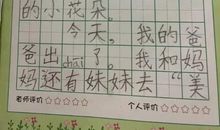 的小花朵。
今天，我的爸
爸出chāi了。我和妈
妈还有妹妹去“美
老师评价☆☆☆☆☆ 个人评价☆☆☆☆☆